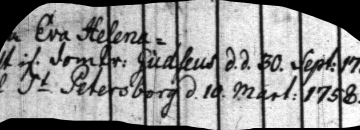 Eva Helena =
if. Jomfr: Gudheus d.d. 30. Sept: 17
St Petersborg d. 10. Mart: 1758.